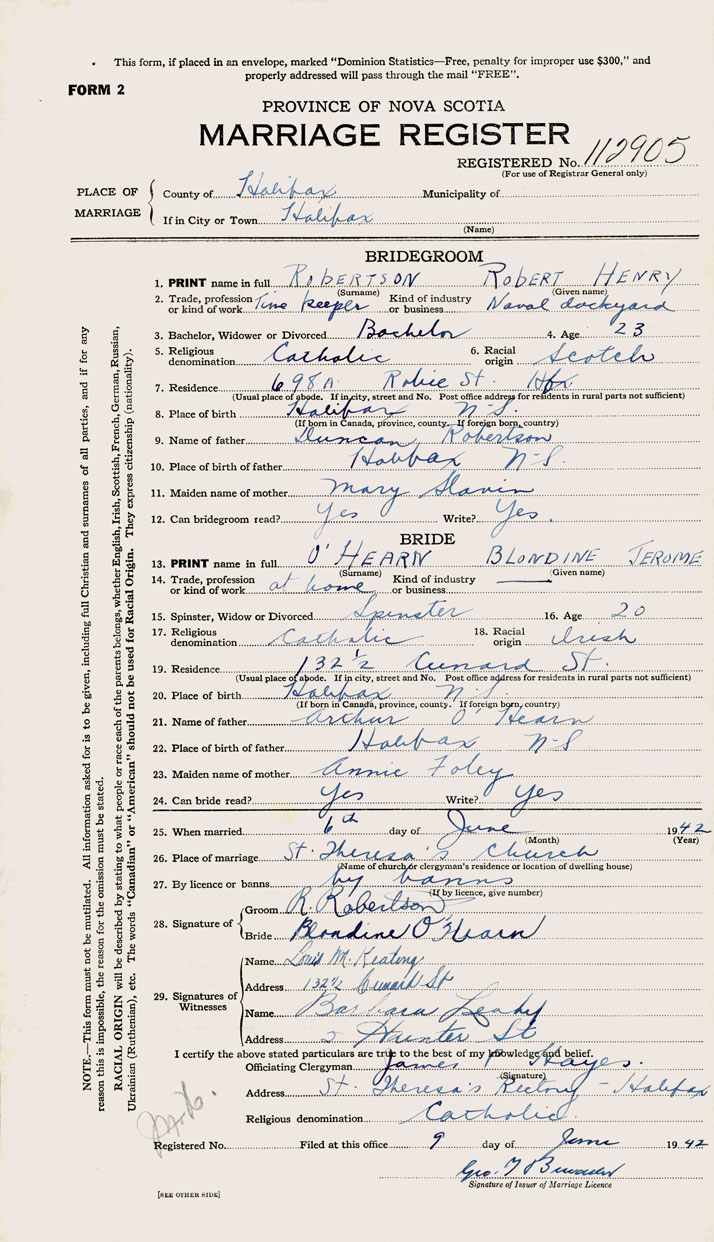 This form, if placed in an envelope, marked "Dominion Statistics—Free, penalty for improper use $300," and
properly addressed will pass through the mail "FREE".
FORM 2
PROVINCE OF NOVA SCOTIA
MARRIAGE REGISTER
REGISTERED No. 112905
(For use of Registrar General only)
PLACE OF MARRIAGE
County of Halifax Municipality of
If in City or Town Halifax
(Name)
BRIDEGROOM
1. PRINT name in full ROBERTSON ROBERT HENRY
(Surname) (Given name)
2. Trade, profession or kind of work Time keeper Kind of industry or business Naval dockyard
3. Bachelor, Widower or Divorced Bachelor 4. Age 23
5. Religious denomination Catholic 6. Racial origin Scotch
7. Residence 698A Robie St. Hfx
(Usual place of abode. If in city, street and No. Post office address for residents in rural parts not sufficient)
8. Place of birth Halifax N-S.
(If born in Canada, province, county. If foreign born, country)
9. Name of father Duncan Robertson
10. Place of birth of father Halifax N-S.
11. Maiden name of mother Mary Slavin
12. Can bridegroom read? Yes Write? Yes.
BRIDE
13. PRINT name in full O'HEARN BLONDINE JEROME
(Surname) (Given name)
14. Trade, profession or kind of work at home Kind of industry or business
15. Spinster, Widow or Divorced Spinster 16. Age 20
17. Religious denomination Catholic 18. Racial origin Irish
19. Residence 132½ Cunard St.
(Usual place of abode. If in city, street and No. Post office address for residents in rural parts not sufficient)
20. Place of birth Halifax N-S.
(If born in Canada, province, county. If foreign born, country)
21. Name of father Arthur O'Hearn
22. Place of birth of father Halifax N-S
23. Maiden name of mother Annie Foley
24. Can bride read? Yes Write? Yes
25. When married 6th day of June 1942
(Month) (Year)
26. Place of marriage St. Theresa's Church
(Name of church or clergyman's residence or location of dwelling house)
27. By licence or banns by banns
(If by licence, give number)
28. Signature of
Groom R. Robertson
Bride Blondine O'Hearn
29. Signatures of Witnesses
Name Louis M. Keating
Address 132½ Cunard St
Name Barbara Leahy
Address 2 Hunter St
I certify the above stated particulars are true to the best of my knowledge and belief.
Officiating Clergyman James P Hayes.
(Signature)
Address St. Theresa's Rectory - Halifax
Religious denomination Catholic.
Registered No. Filed at this office 9 day of June 1942
Geo.
Signature of Issuer of Marriage Licence
[SEE OTHER SIDE]
NOTE.—This form must not be mutilated. All information asked for is to be given, including full Christian and surnames of all parties, and if for any
reason this is impossible, the reason for the omission must be stated.
RACIAL ORIGIN will be described by stating to what people or race each of the parents belongs, whether English, Irish, Scottish, French, German, Russian,
Ukrainian (Ruthenian), etc. The words "Canadian" or "American" should not be used for Racial Origin. They express citizenship (nationality).